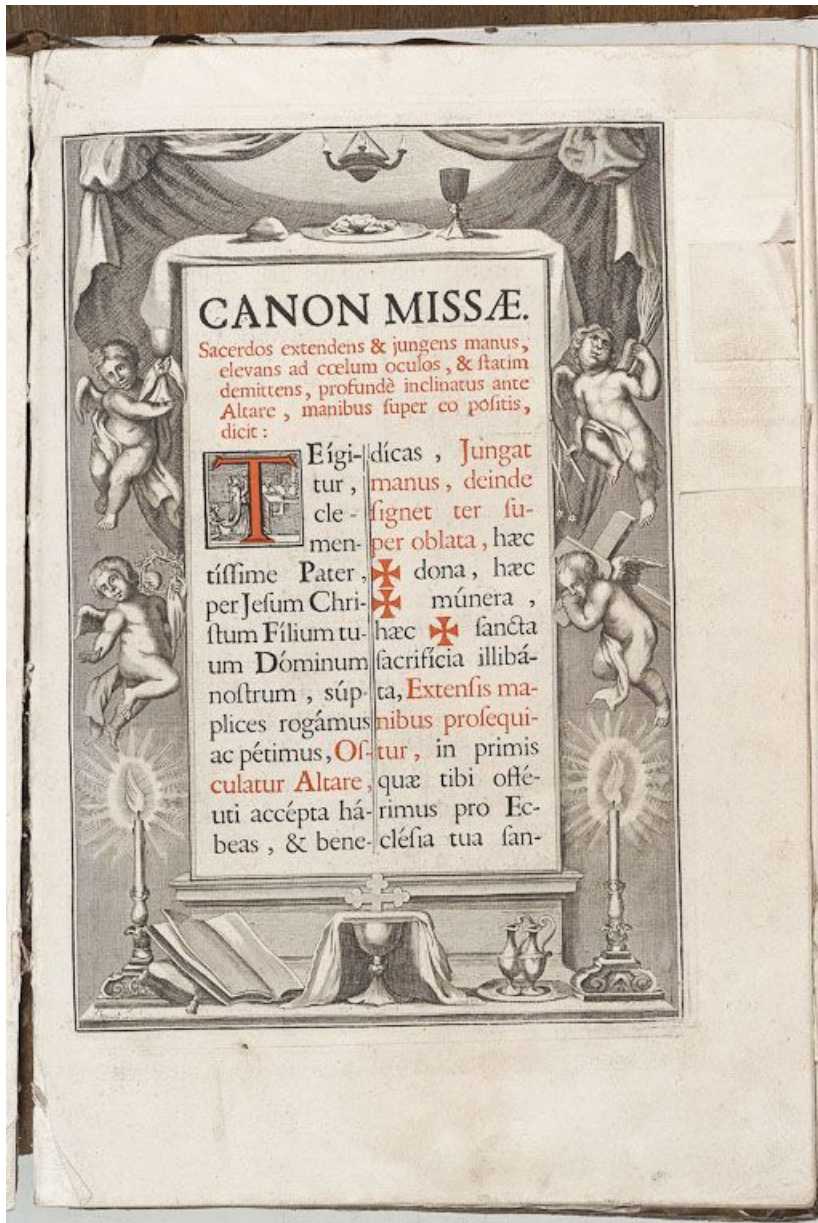 CANON MISSÆ.
Sacerdos extendens & jungens manus,
elevans ad cœlum oculos, & ſtatim
demittens, profundè inclinatus ante
Altare, manibus ſuper eo poſitis,
dicit:
TEígi-
tur,
cle-
men-
tíſſime Pater,
per Jeſum Chri-
ſtum Fílium tu-
um Dóminum
noſtrum, súp-
plices rogámus
ac pétimus, Oſ-
culatur Altare,
uti accépta há-
beas, & bene-
dícas, Jungat
manus, deinde
ſignet ter ſu-
per oblata, hæc
✠ dona, hæc
✠ múnera,
hæc ✠ ſancta
ſacrifícia illibá-
ta, Extenſis ma-
nibus proſequi-
tur, in primis
quæ tibi offé-
rimus pro Ec-
cléſia tua ſan-